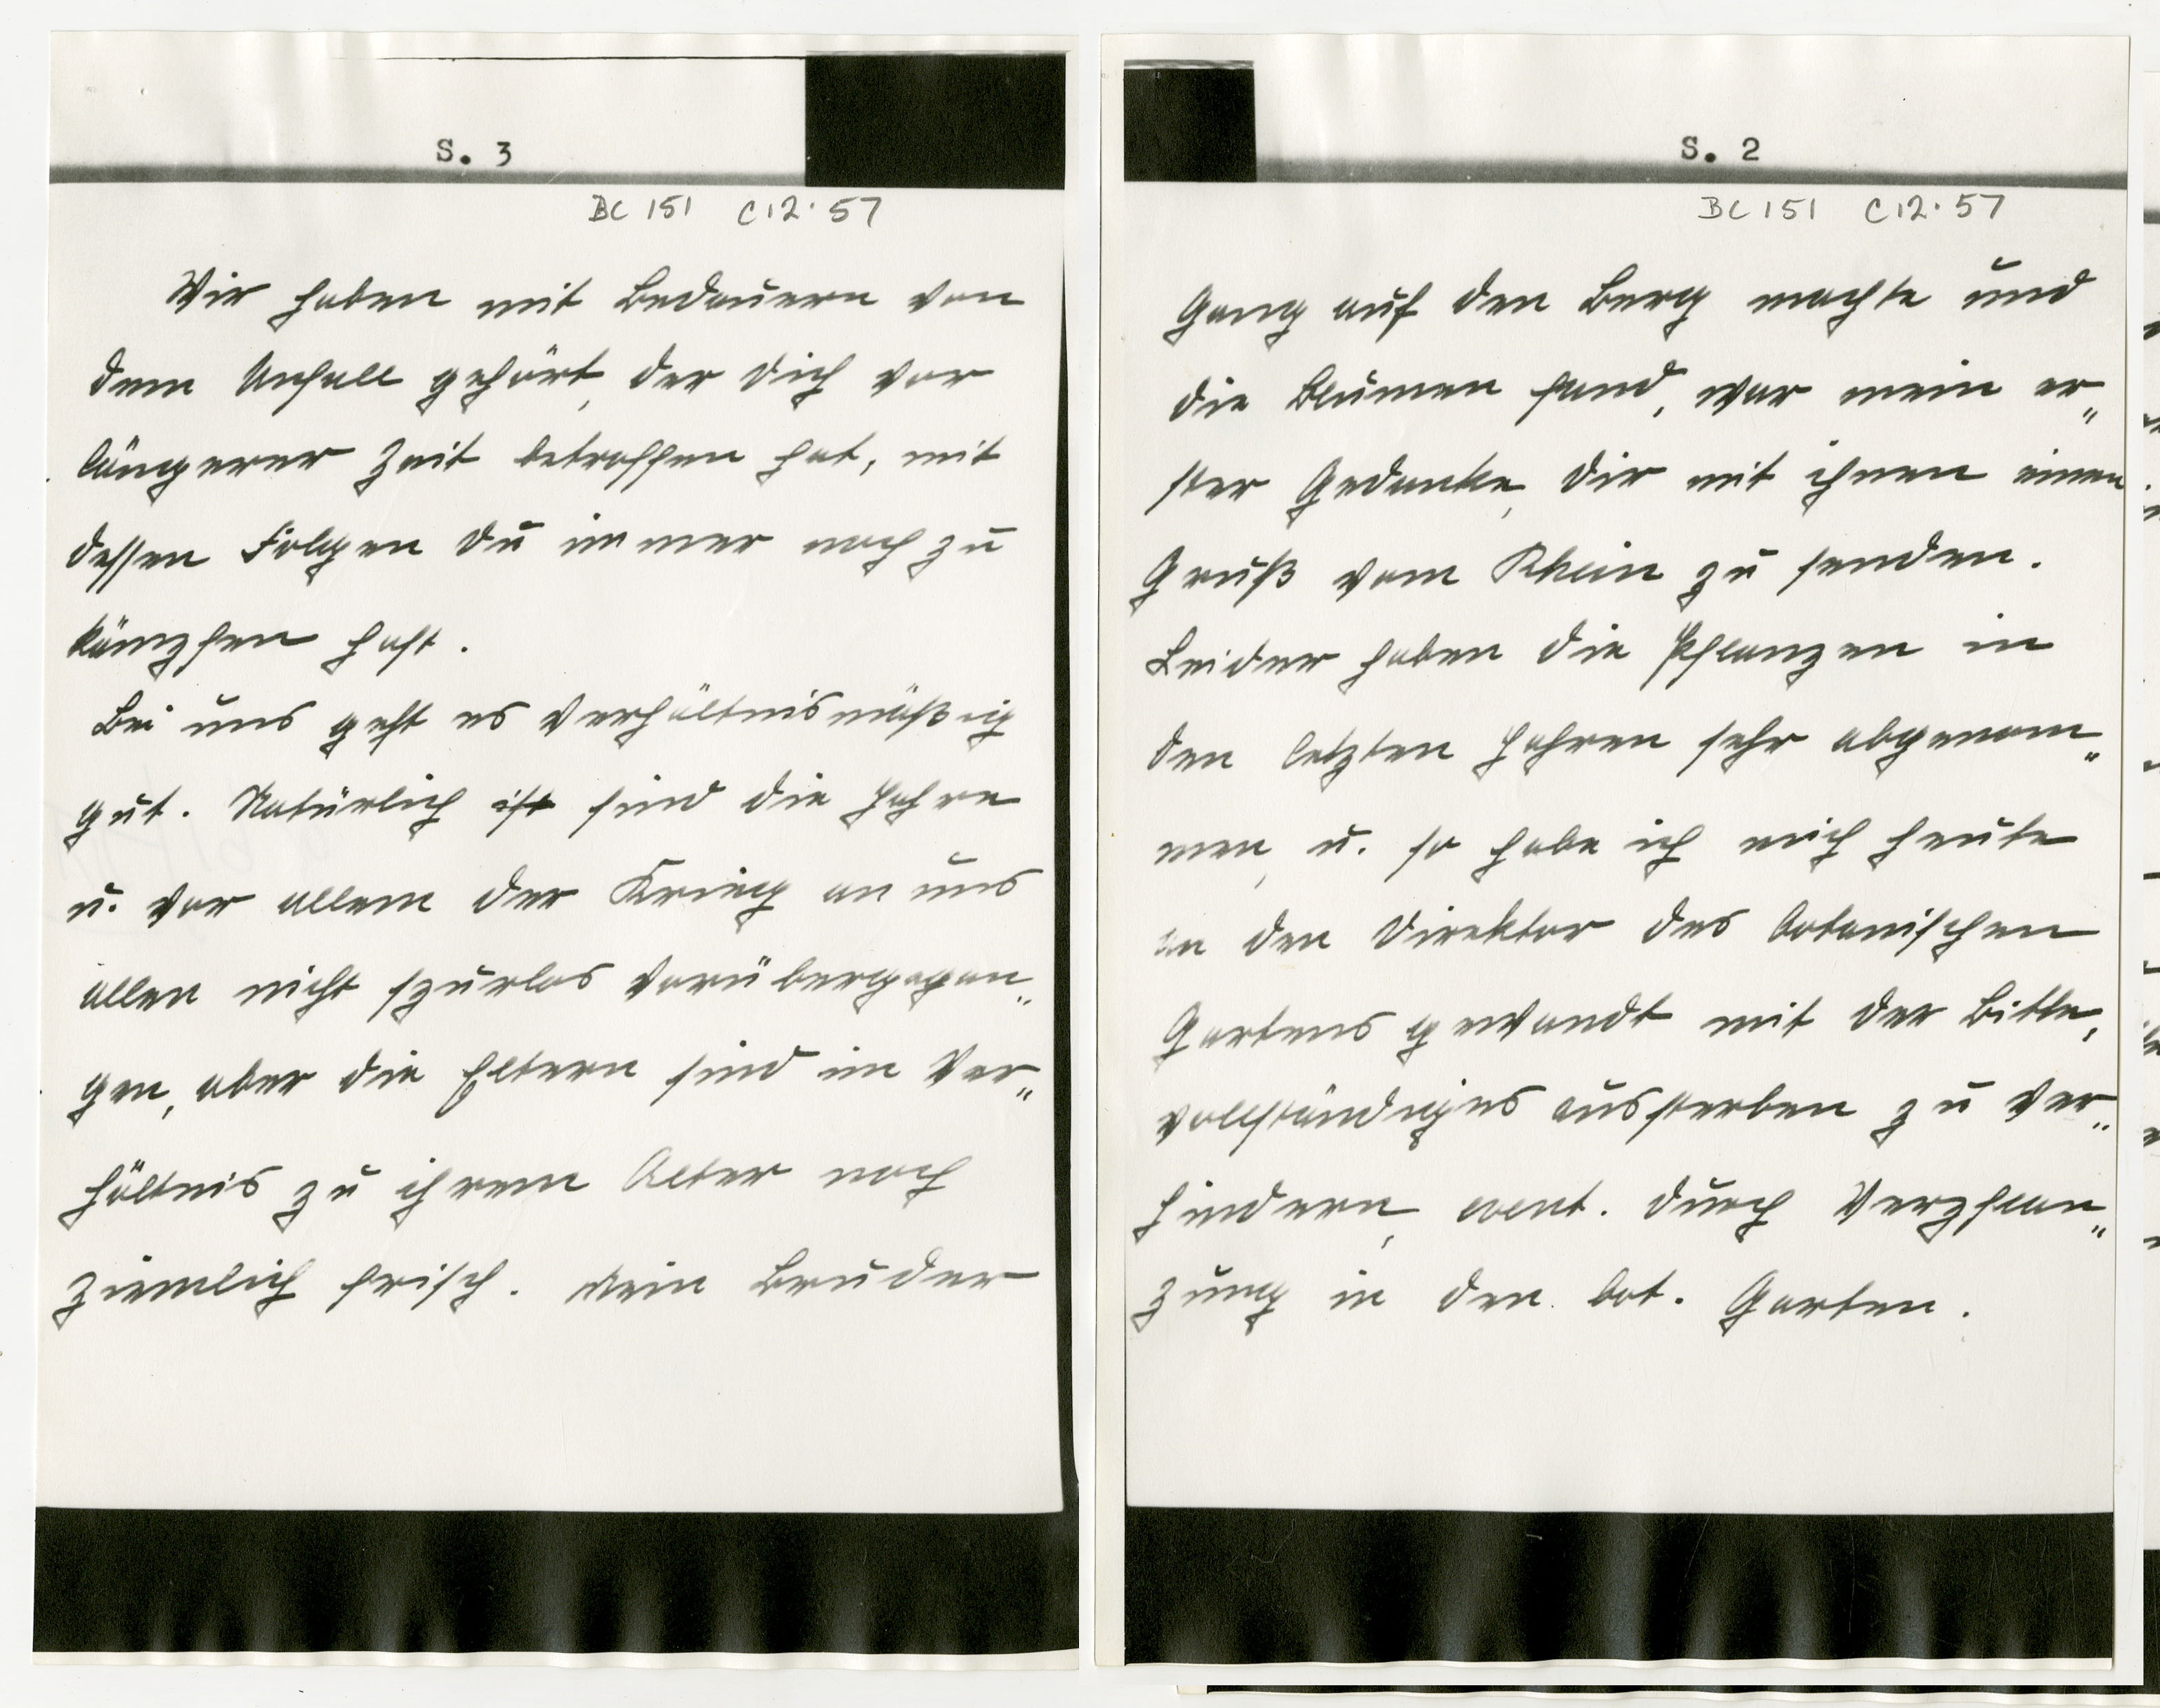 S. 3
BC 151 C12.57
Wir haben mit Bedauern von
dem Unfall gehört, der Dich vor
längerer Zeit betroffen hat, mit
dessen Folgen Du immer noch zu
kämpfen hast.
Bei uns geht es verhältnismäßig
gut. Natürlich ist sind die Jahre
u. vor allem der Krieg an uns
allen nicht spurlos vorübergegan„
gen, aber die Eltern sind im Ver„
hältnis zu ihrem Alter noch
ziemlich frisch. Mein Bruder
S. 2
BC 151 C12.57
Gang auf den Berg machte und
die Blumen fand, war mein er„
ster Gedanke, Dir mit ihnen einen
Gruß vom Rhein zu senden.
Leider haben die Pflanzen in
den letzten Jahren sehr abgenom„
men, u. so habe ich mich heute
an den Direktor des botanischen
Gartens gewandt mit der Bitte,
vollständiges Aussterben zu ver„
hindern, event. durch Verpflan„
zung in den bot. Garten.